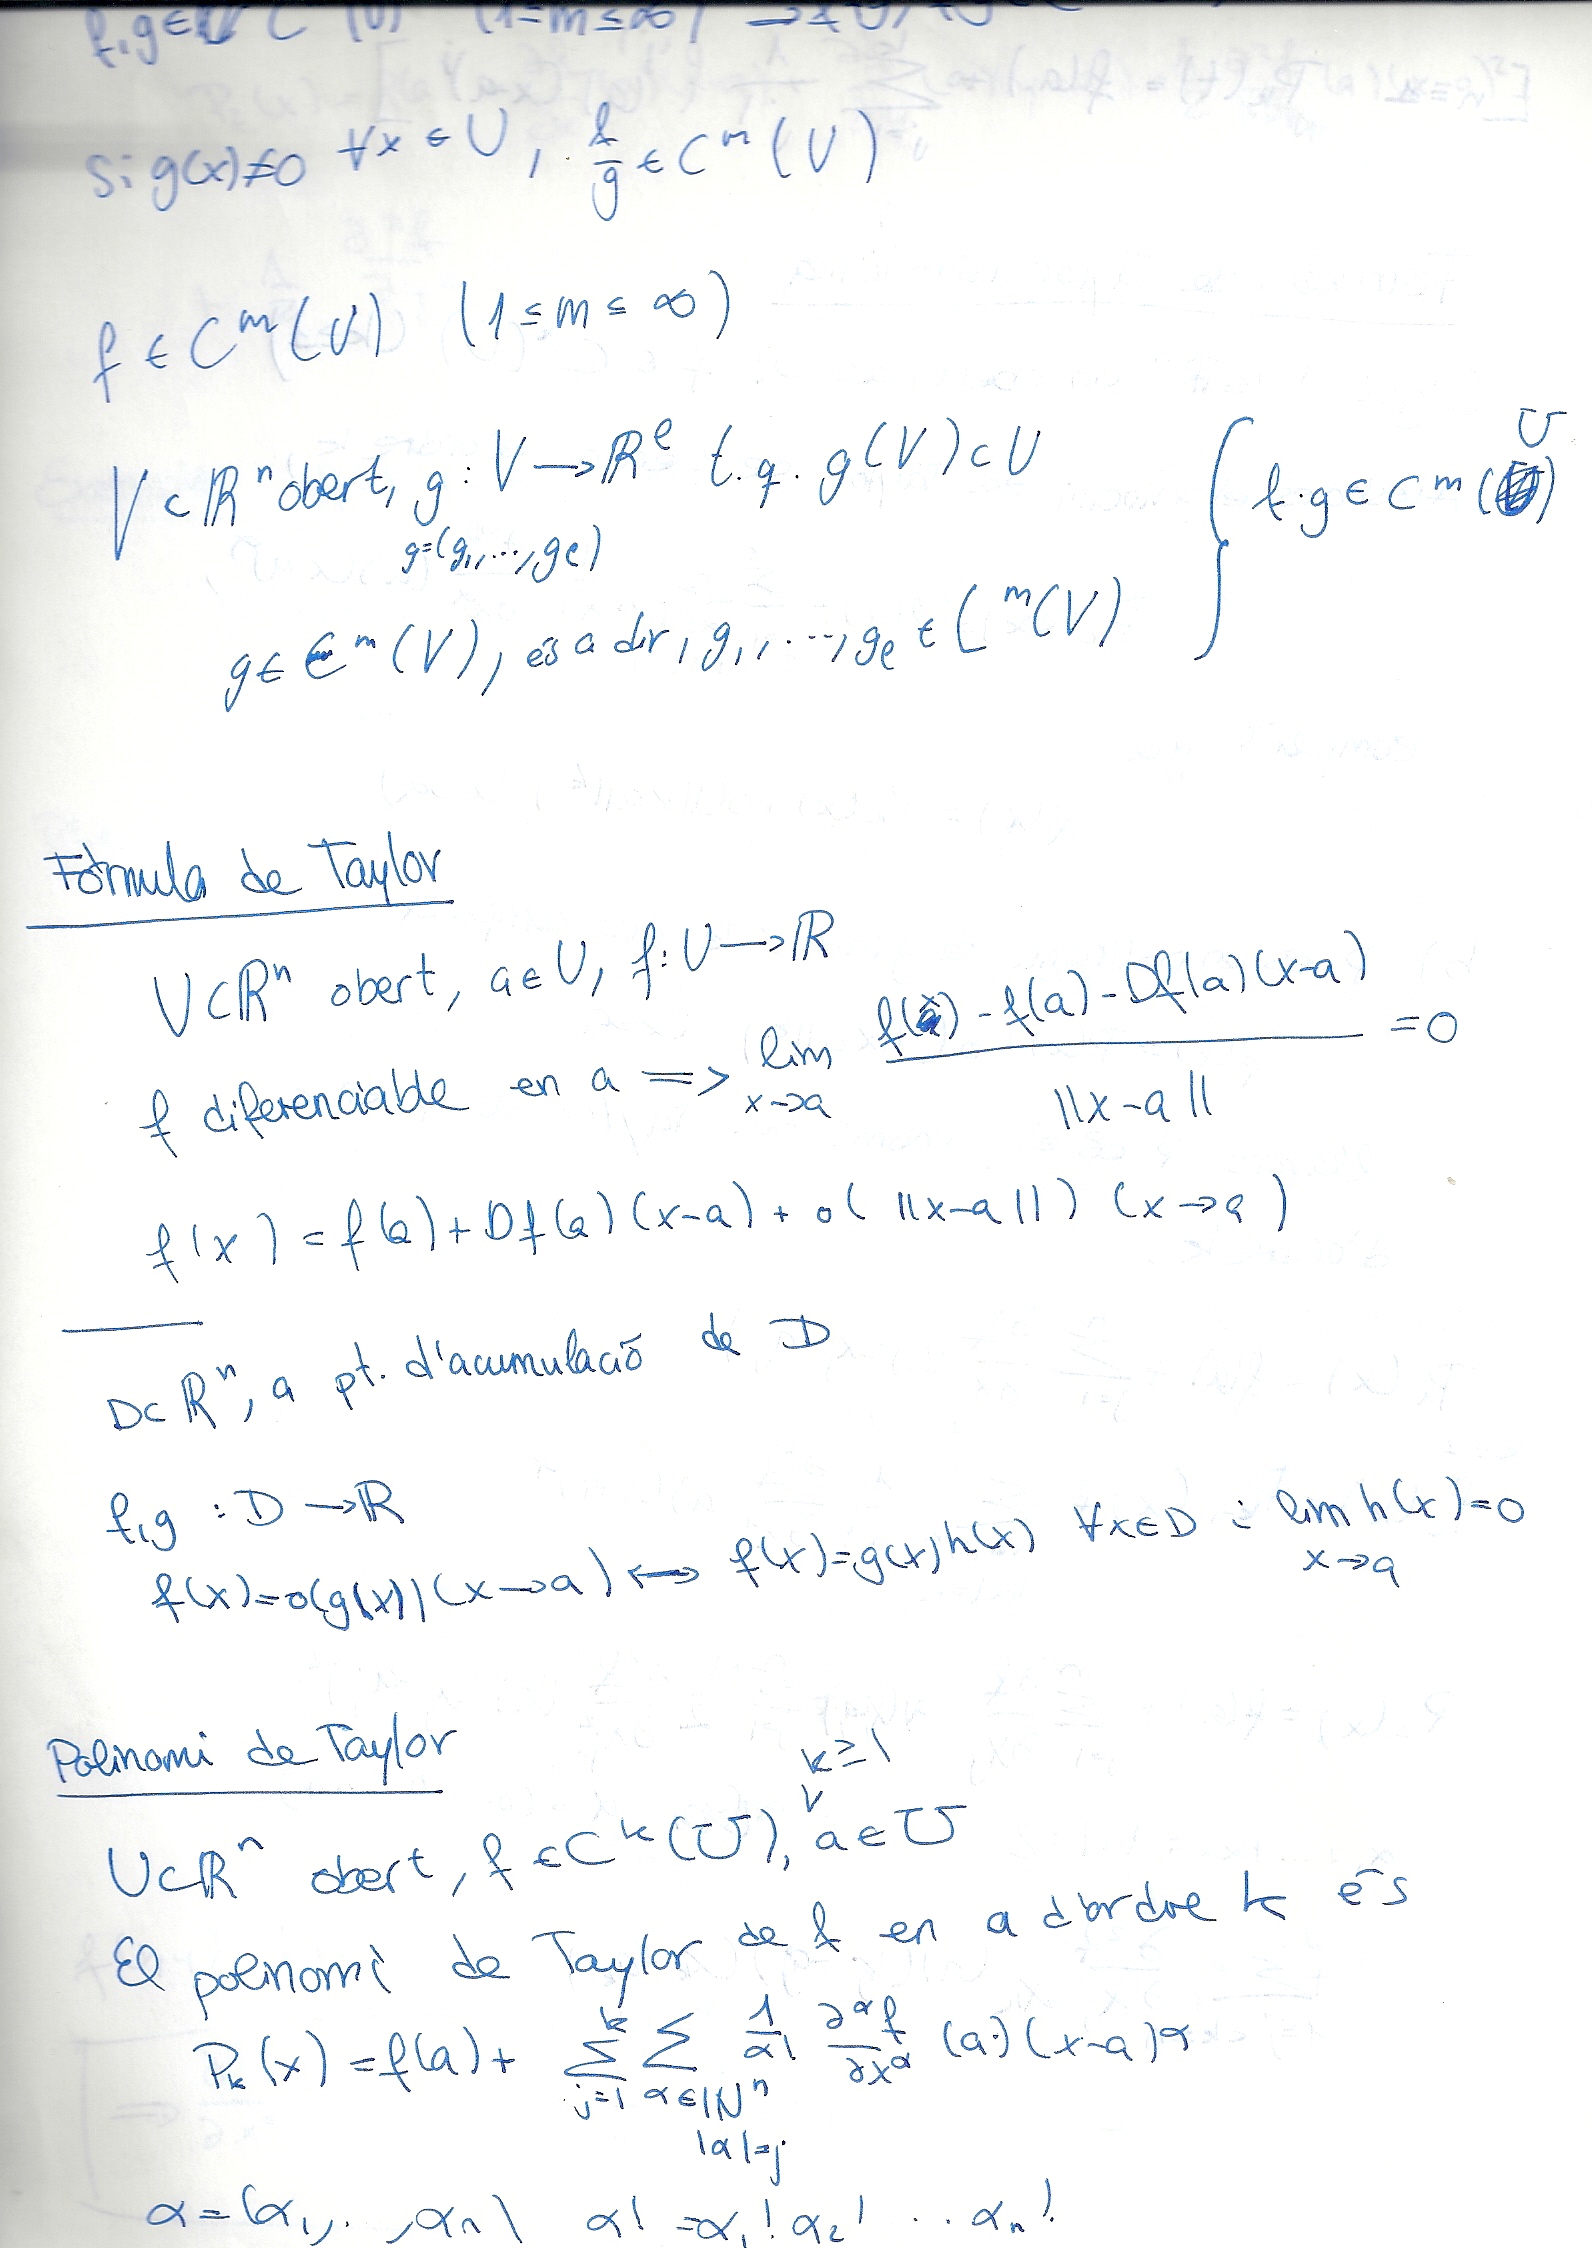 f,g ∈ C (U) (1≤m≤∞) →
Si g(x)≠0 ∀x ∈ U, f/g ∈ C^m(U)
f ∈ C^m(U) (1≤m≤∞)
V ⊂ ℝ^n obert, g: V → ℝ^l t.q. g(V) ⊂ U
g=(g_1,...,g_l)
g ∈ C^m(V), és a dir, g_1,...,g_l ∈ C^m(V)
} f·g ∈ C^m(U)
Fórmula de Taylor
U ⊂ ℝ^n obert, a ∈ U, f: U → ℝ
f diferenciable en a => lim_{x→a} (f(x) - f(a) - Df(a)(x-a)) / ||x-a|| = 0
f(x) = f(a) + Df(a)(x-a) + o(||x-a||) (x→a)
D ⊂ ℝ^n, a pt. d'acumulació de D
f,g : D → ℝ
f(x)=o(g(x)) (x→a) ↔ f(x)=g(x)h(x) ∀x∈D i lim_{x→a} h(x)=0
Polinomi de Taylor
k≥1
U ⊂ ℝ^n obert, f ∈ C^k(U), a ∈ U
El polinomi de Taylor de f en a d'ordre k és
P_k(x) = f(a) + ∑_{j=1}^k ∑_{α∈ℕ^n |α|=j} 1/α! ∂^α f/∂x^α (a)(x-a)^α
α=(α_1,..,α_n) α! = α_1! α_2! .. α_n!